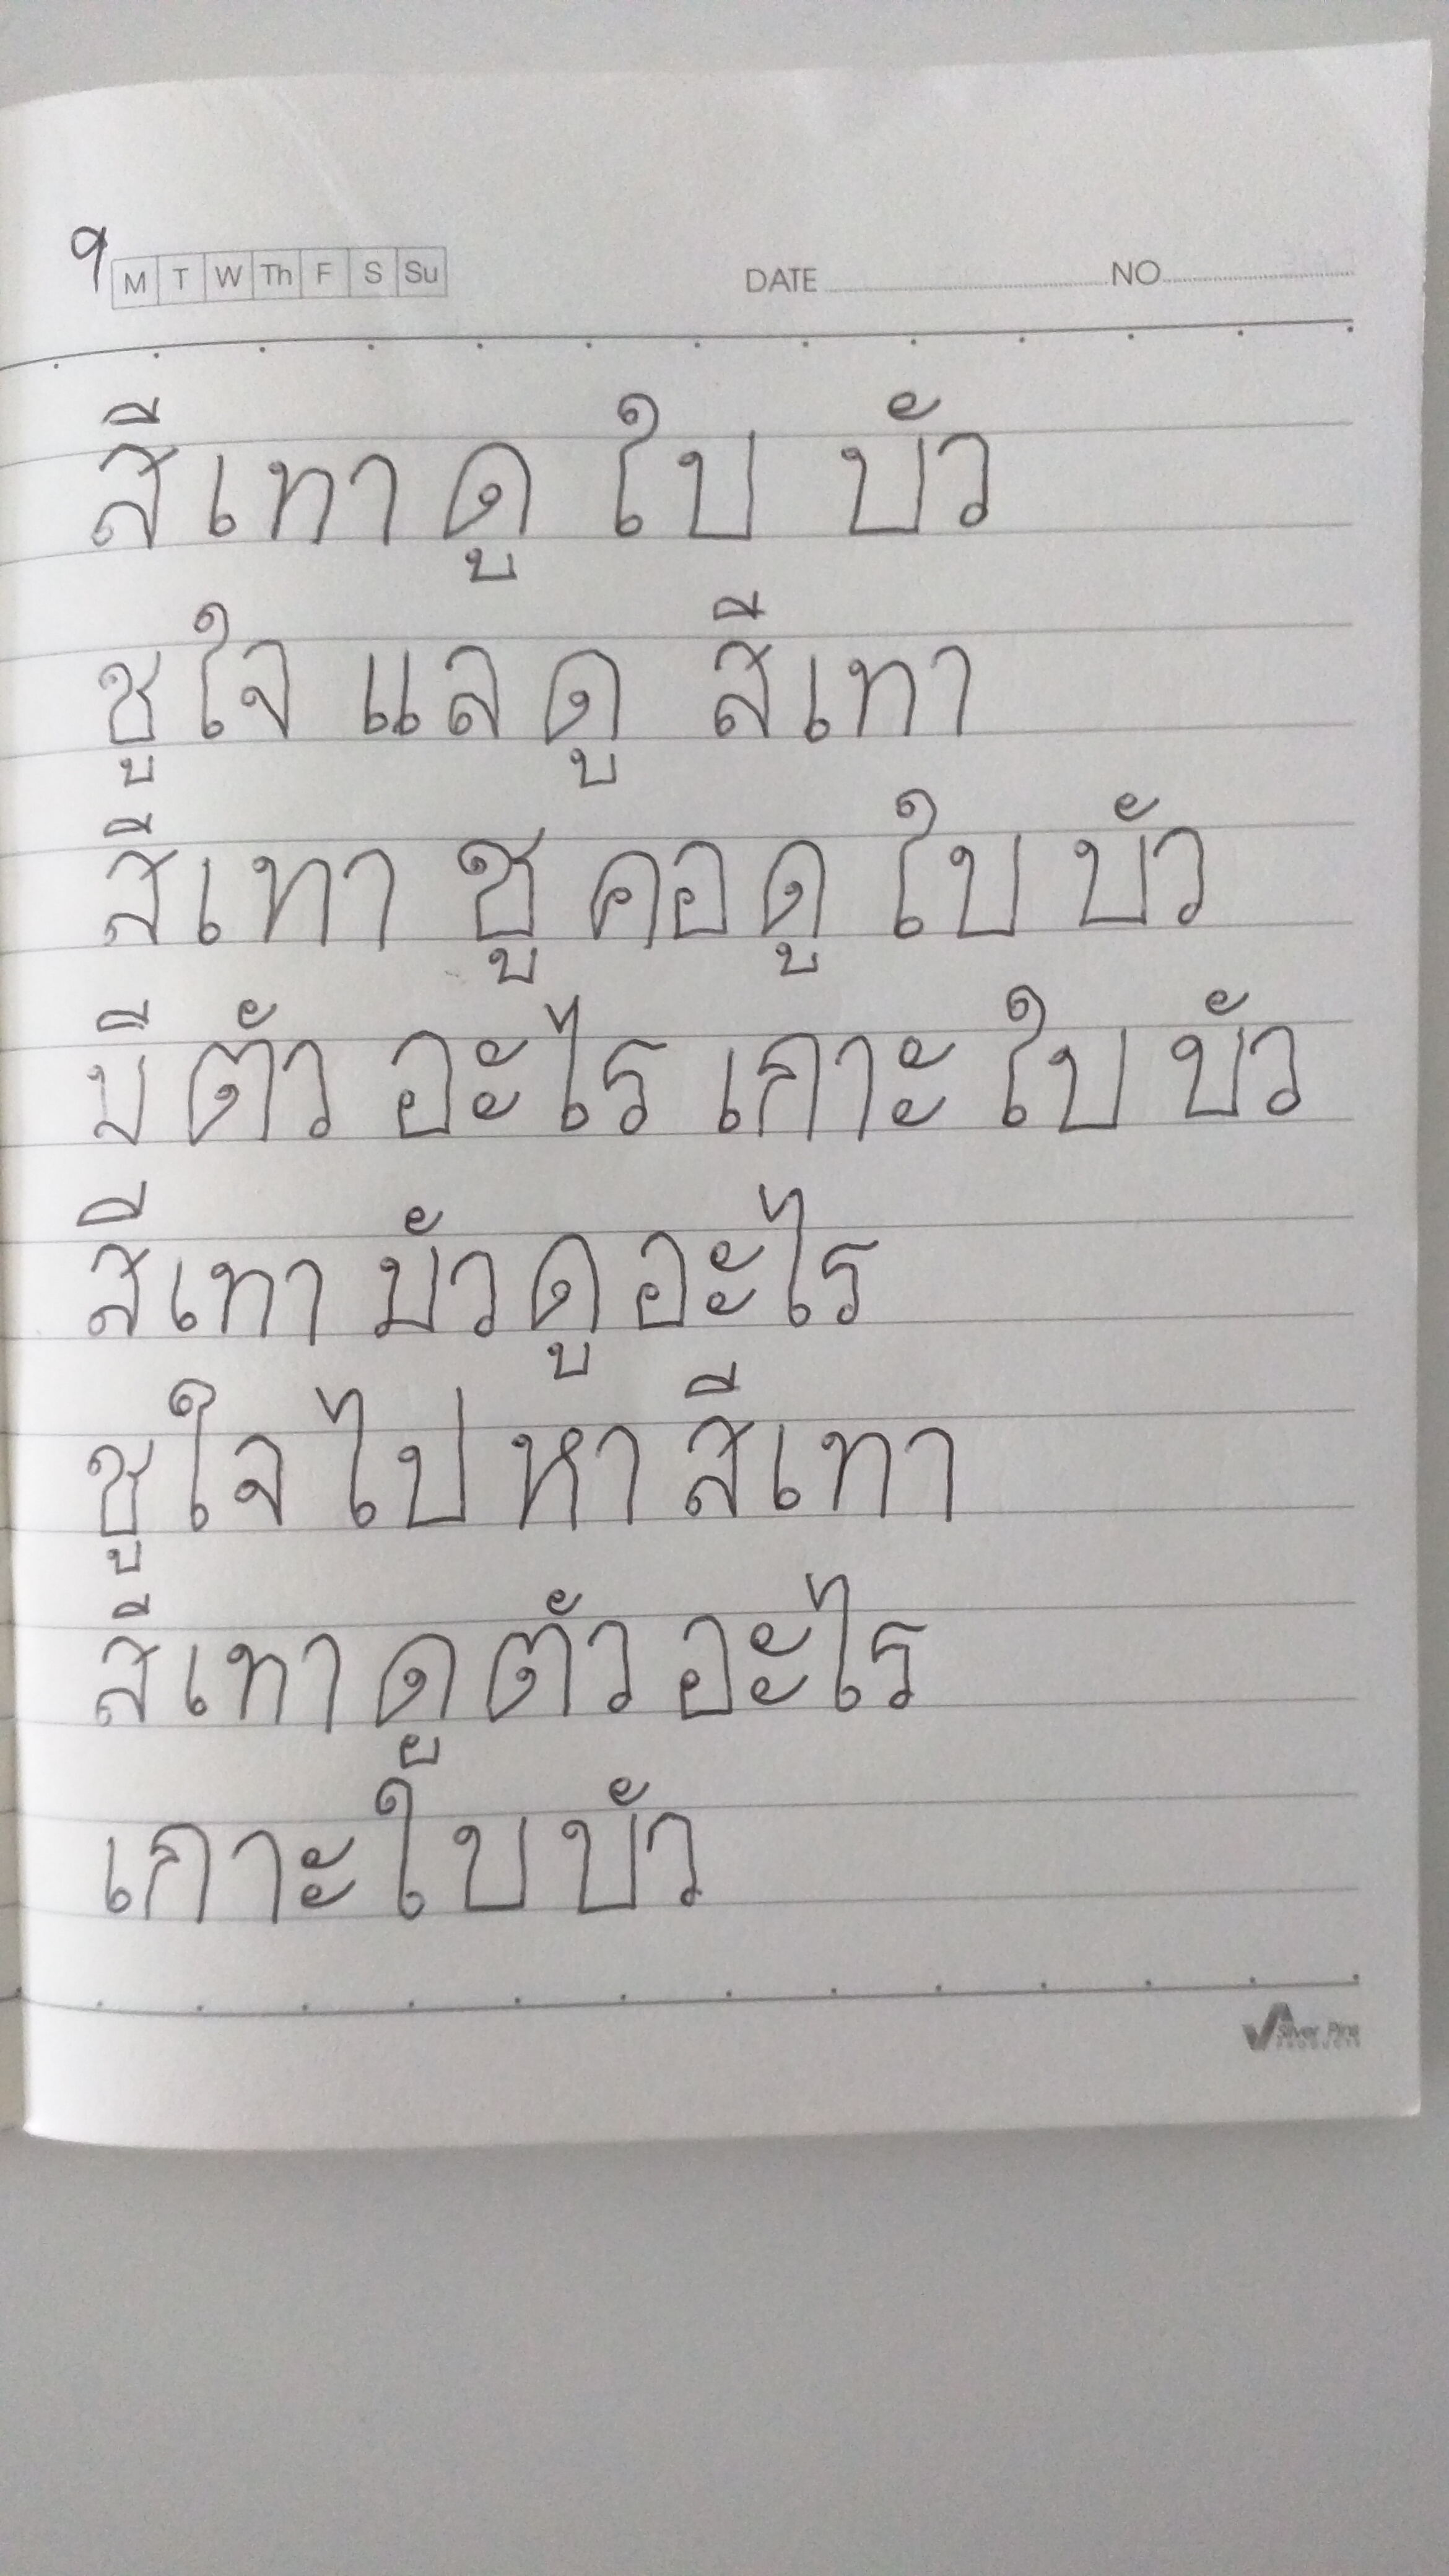 9
M T W Th F S Su DATE NO
สีเทาดู ใบ บัว
ชูใจ แลดู สีเทา
สีเทา ชู คอดู ใบ บัว
บี ตัว อะไร เกาะ ใบ บัว
สีเทา บัวดู อะไร
ชูใจ ไป หา สีเทา
สีเทาดู ตัว อะไร
เกาะ ใบ บัว
Silver Pine